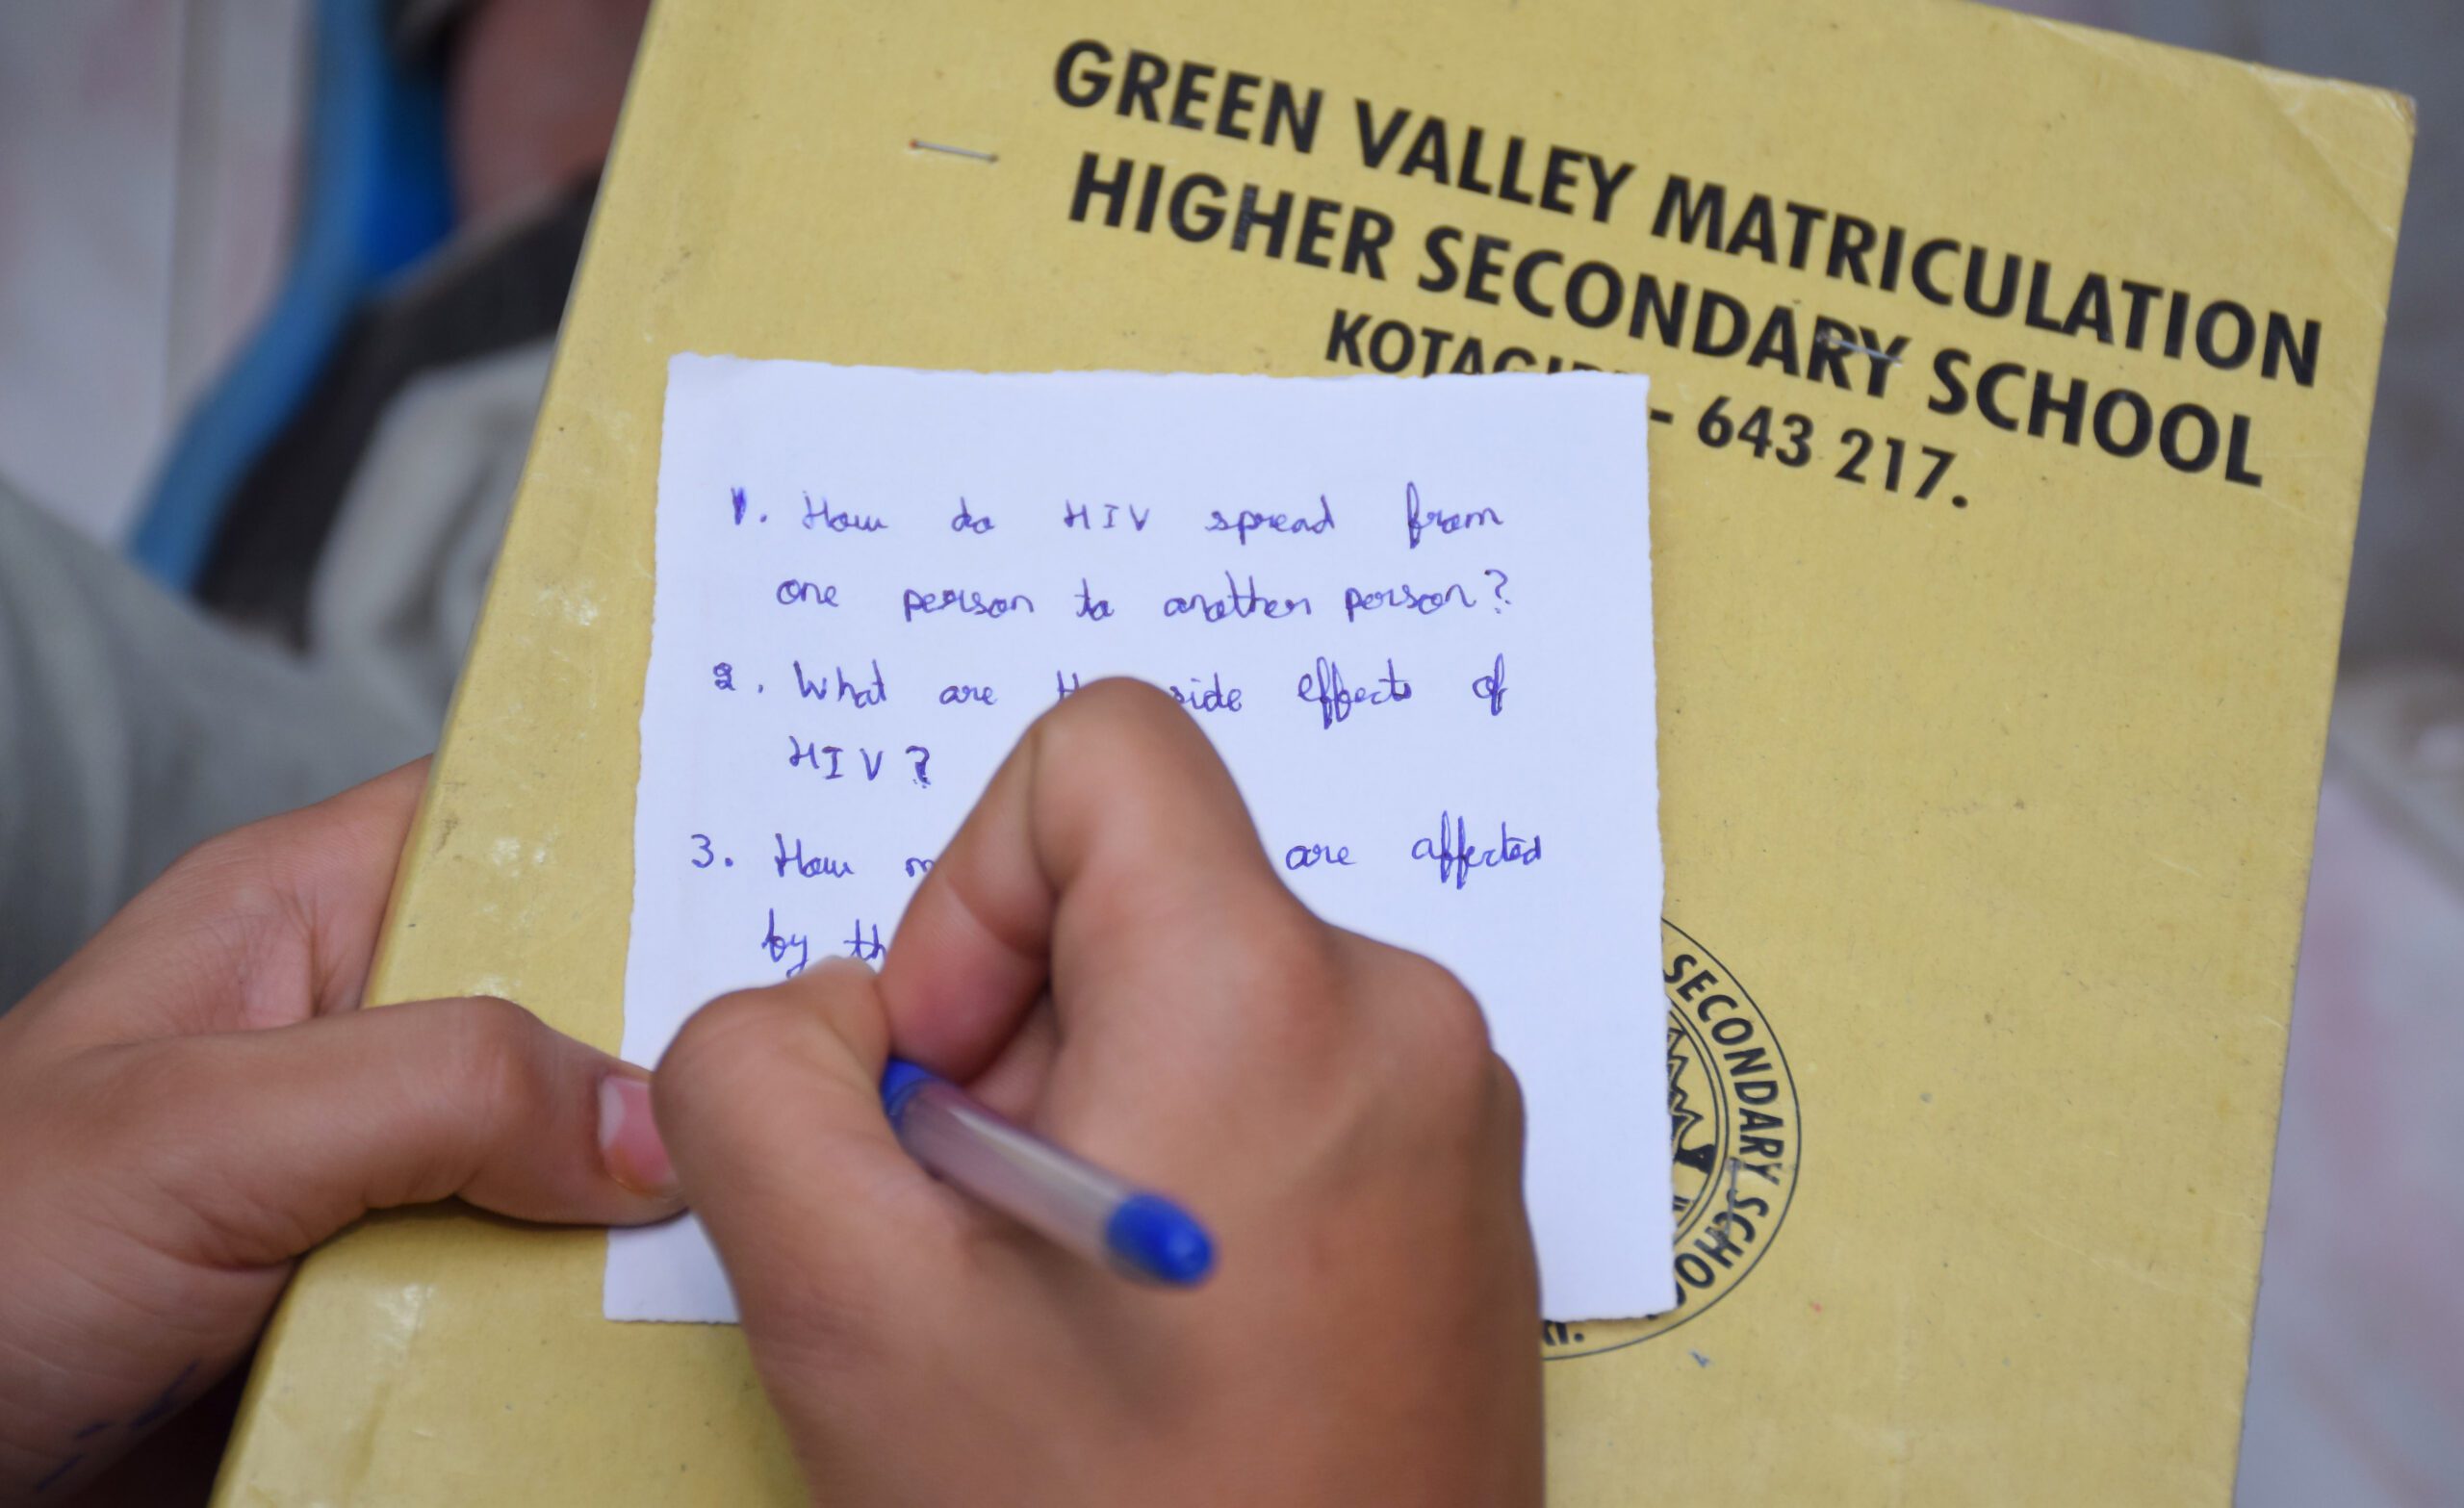 GREEN VALLEY MATRICULATION
HIGHER SECONDARY SCHOOL
- 643 217.
1. How do HIV spread from
one person to another person?
2. What are side effects of
HIV?
3. How are affected
by
SECONDARY SCHOOL